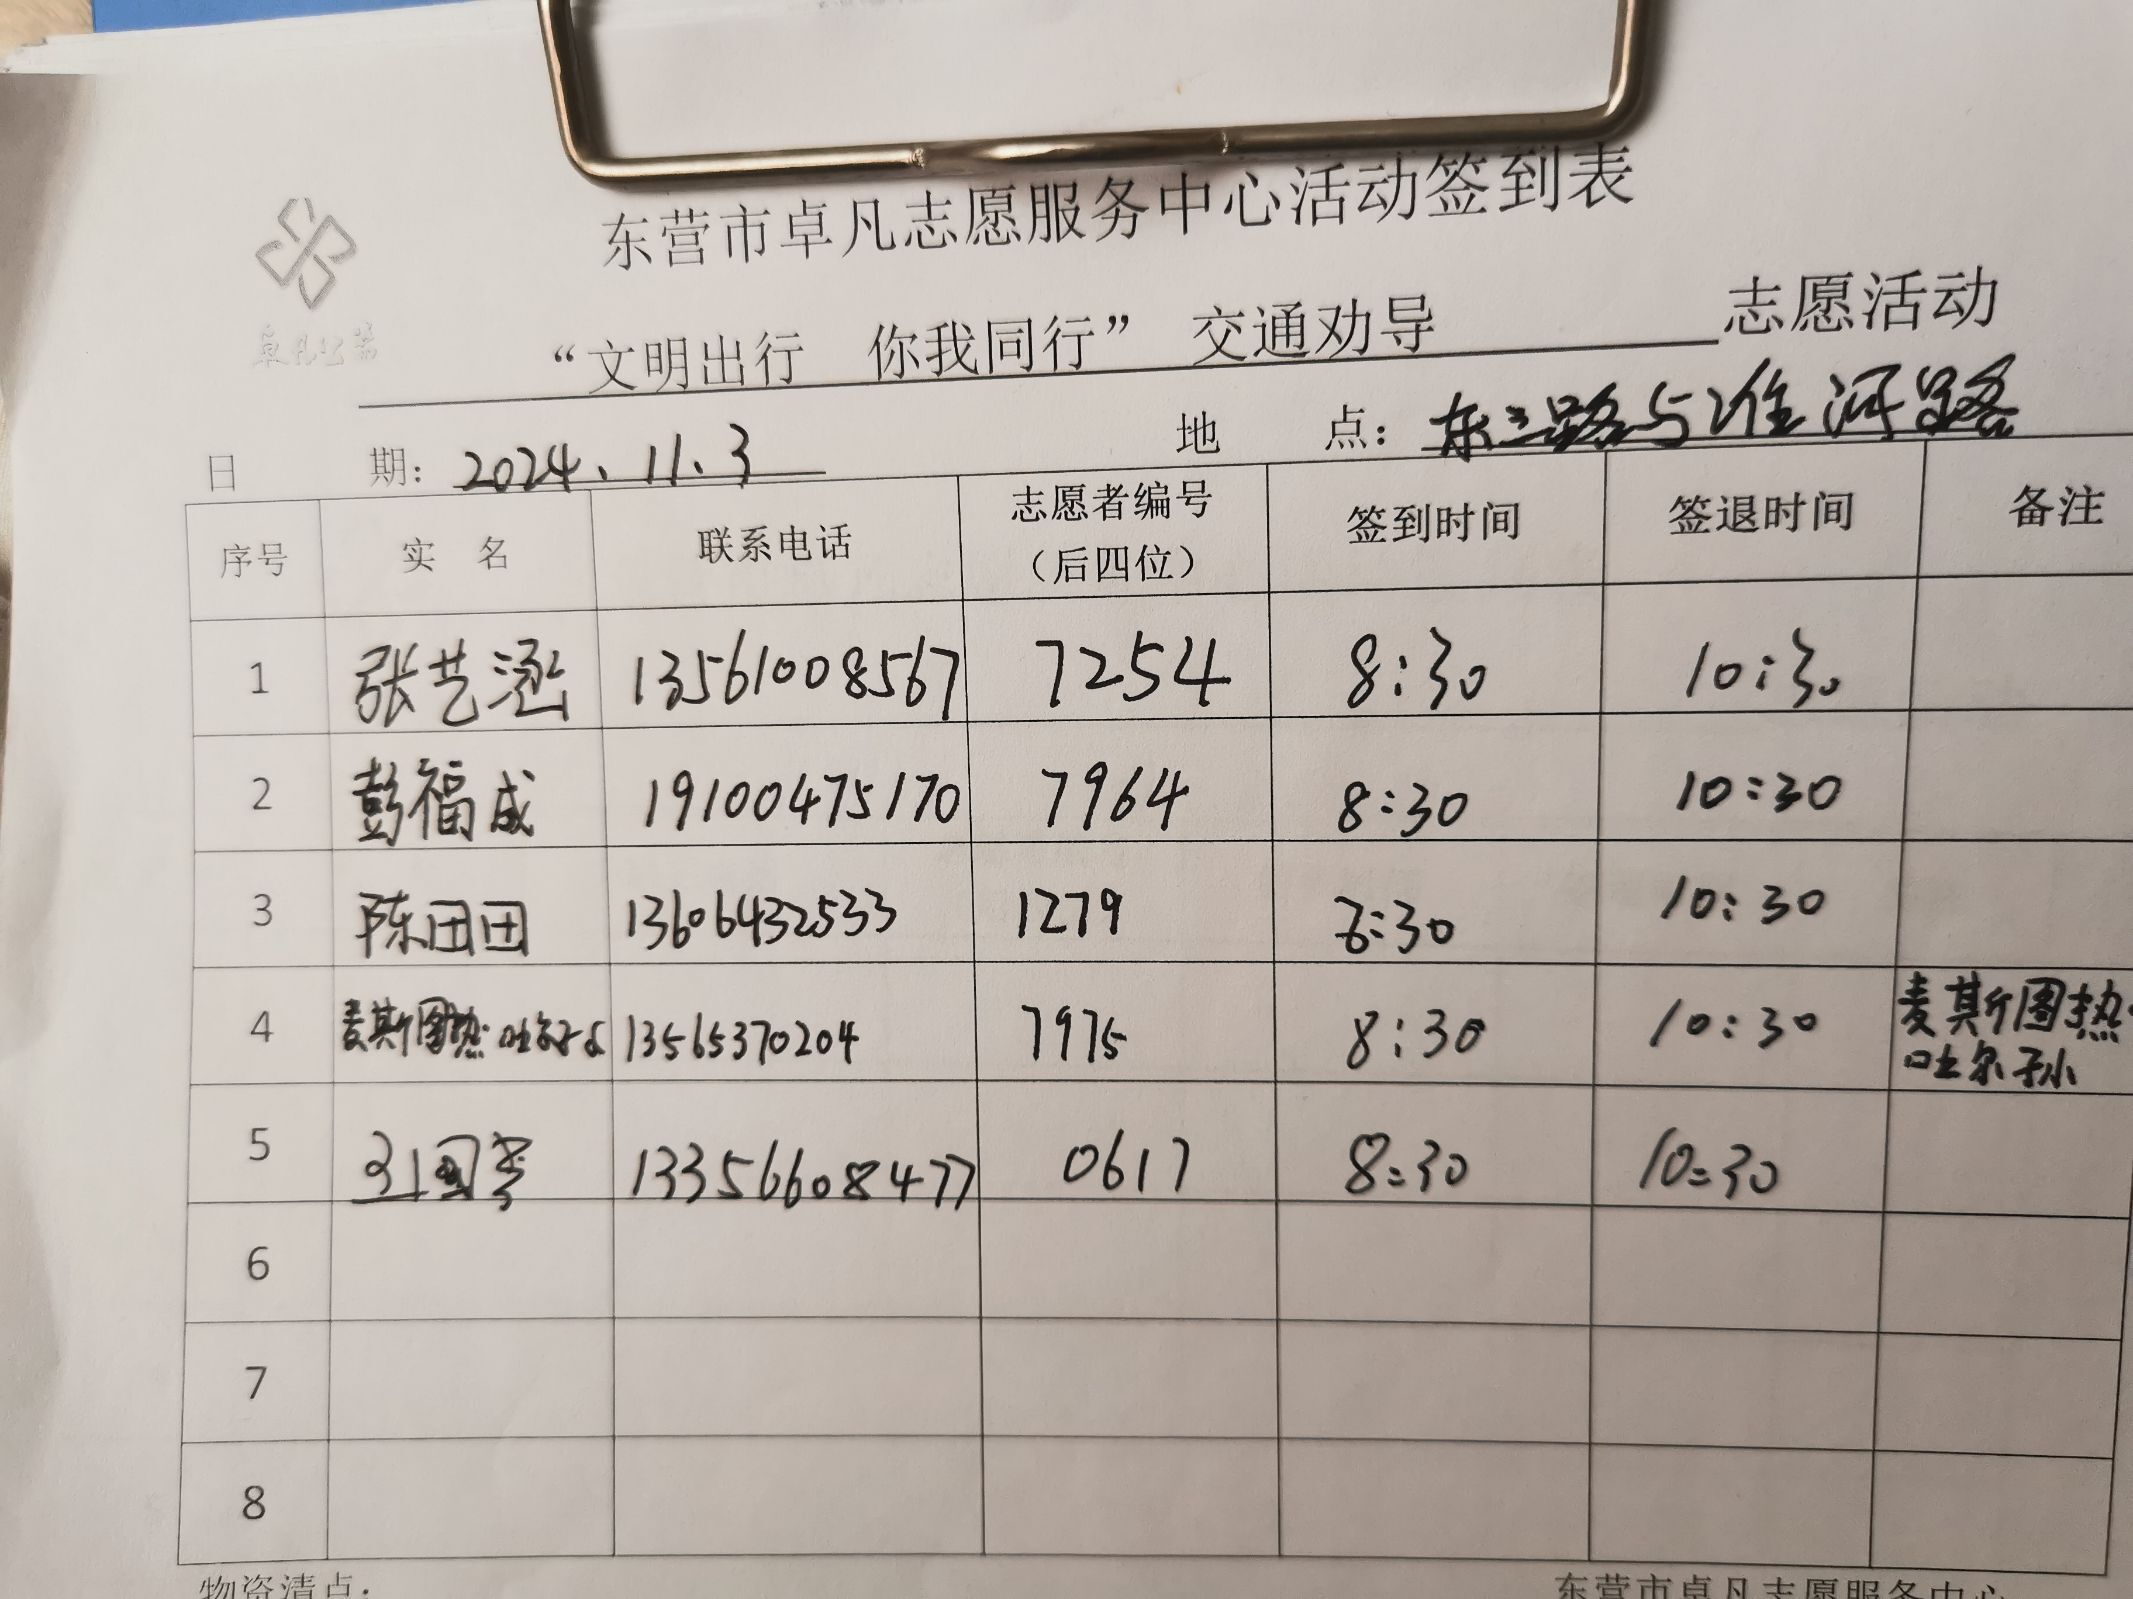 东营市卓凡志愿服务中心活动签到表
“文明出行 你我同行” 交通劝导 志愿活动
日 期: 2024.11.3 地 点: 东三路与淮河路
序号 实 名 联系电话 志愿者编号（后四位） 签到时间 签退时间 备注
1 张艺涵 13561008567 7254 8:30 10:30
2 彭福成 19100475170 7964 8:30 10:30
3 陈田田 13606432533 1279 8:30 10:30
4 麦斯图热·吐尔孙 13565370204 7975 8:30 10:30 麦斯图热·
吐尔孙
5 刘国 13356608477 0617 8:30 10:30
6
7
8
物资清点: 东营市卓凡志愿服务中心